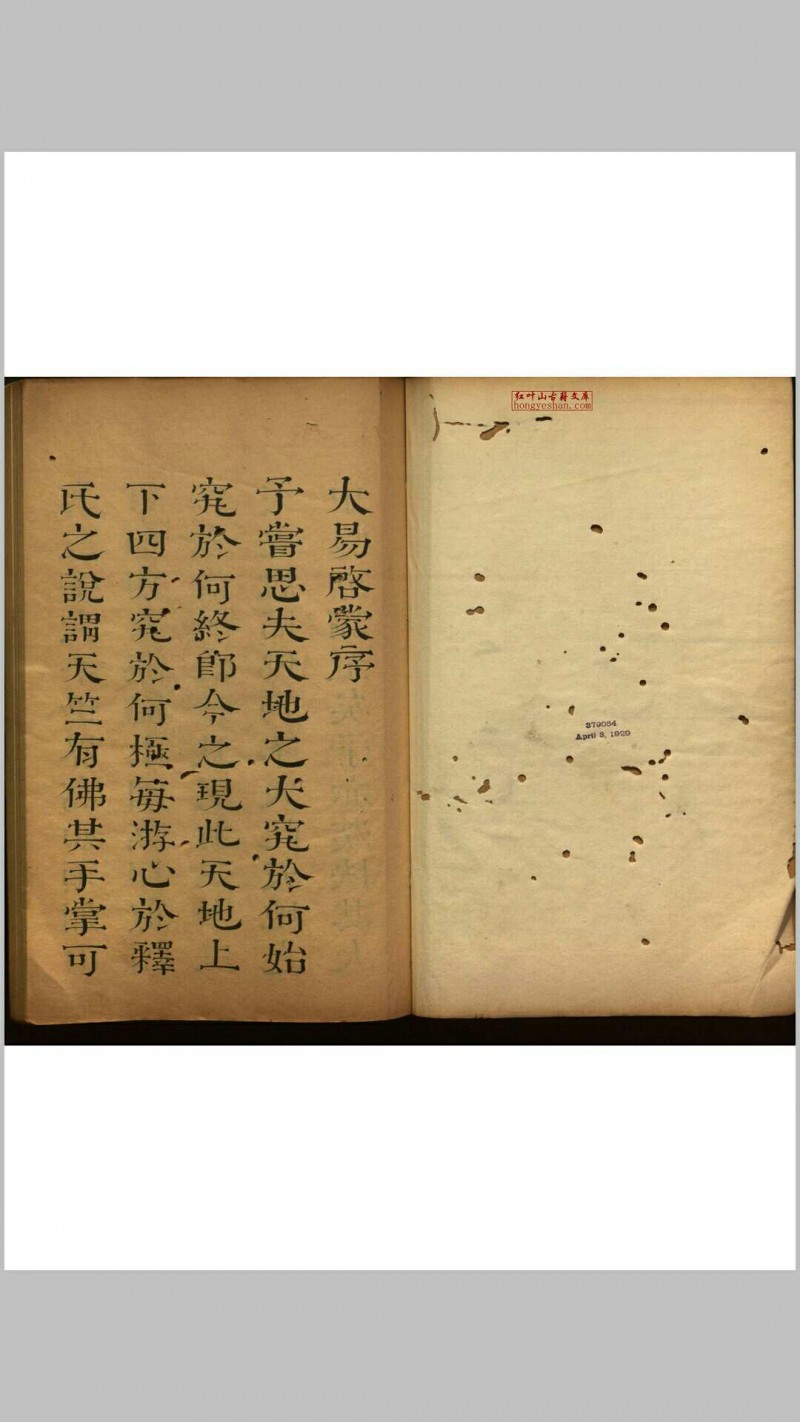 红叶山古籍文库
hongyeshan.com
April
大易啓蒙序
予嘗思夫天地之大究於何始
究於何終即今之現此天地上
下四方究於何極每游心於釋
氏之說謂天竺有佛其手掌可